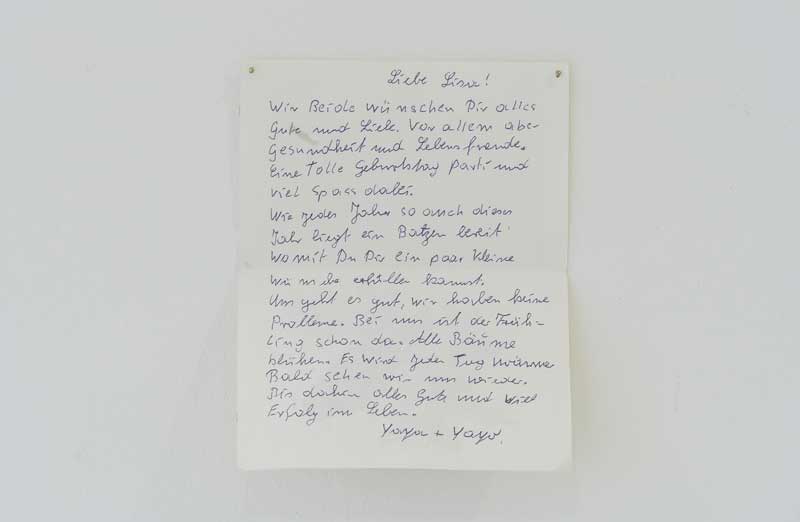 Liebe Lisa!
Wir Beide wünschen Dir alles
Gute und Liebe. Vor allem aber
Gesundheit und Lebensfreude.
Eine Tolle Geburtstag Parti und
viel Spass dabei.
Wie jedes Jahr so auch dieses
Jahr liegt ein Batzen bereit
womit Du Dir ein paar kleine
Wünsche erfüllen kannst.
Uns geht es gut, wir haben keine
Probleme. Bei uns ist der Früh-
ling schon da. Alle Bäume
blühen. Es wird jeden Tag wärmer
Bald sehen wir uns wieder.
Bis dahin alles Gute und viel
Erfolg im Leben.
Yaya + Yayo.